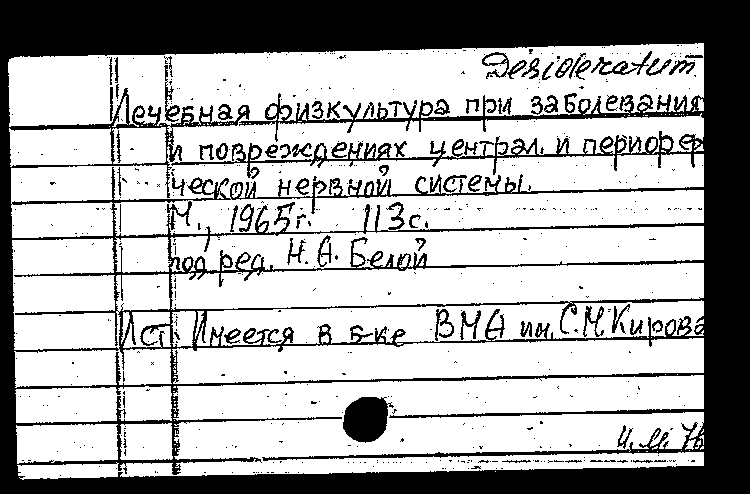 Desideratum
Лечебная физкультура при заболевания
и повреждениях централ. и перифер
ческой нервной системы.
М., 1965г. 113с.
под ред. Н. А. Белой
Ист. Имеется в б-ке ВМА им. С.М.Кирова